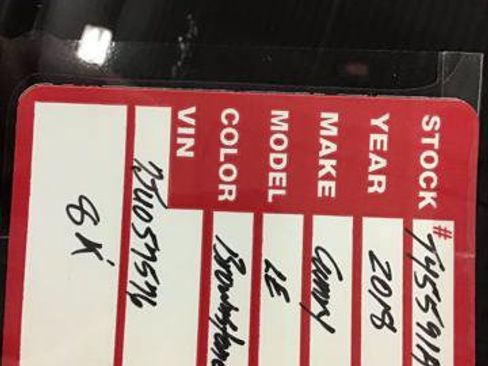 STOCK # T45591A
YEAR 2018
MAKE Camry
MODEL LE
COLOR Brownstone
VIN JU057576
8K